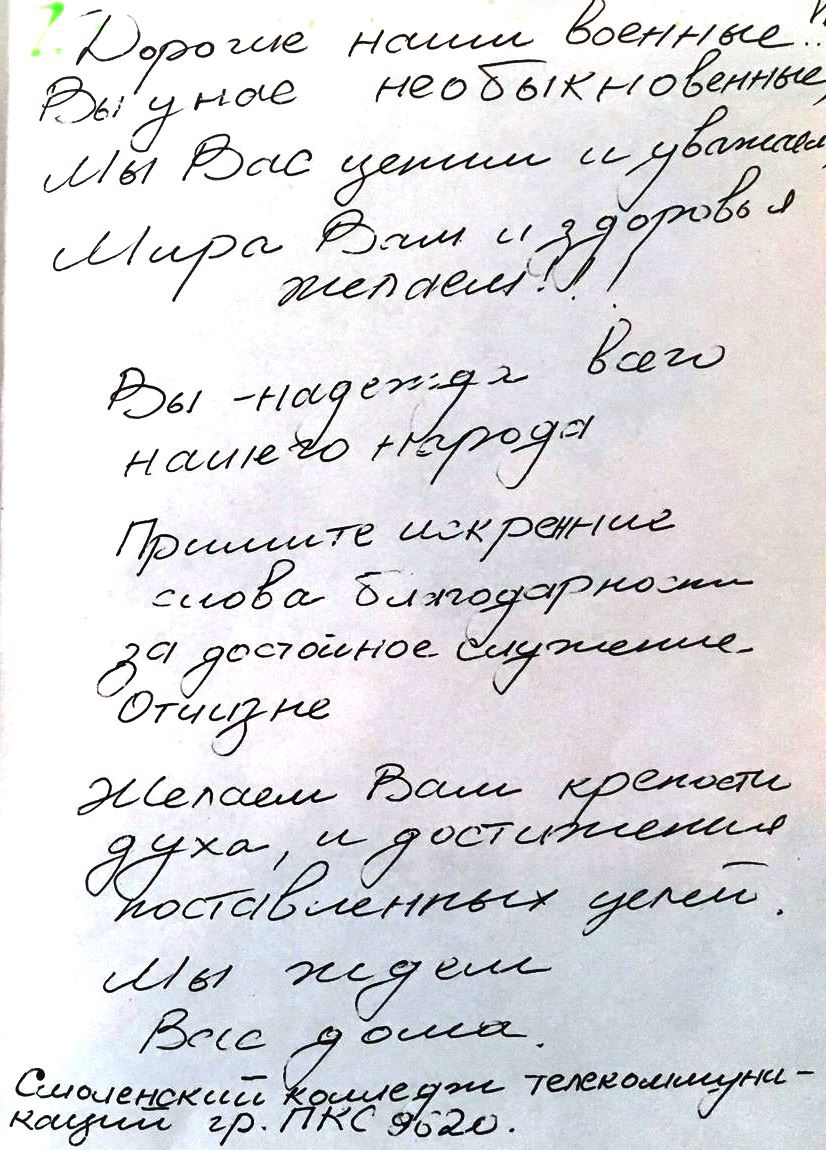 Дорогие наши военные..
Вы у нас необыкновенные,
Мы Вас ценим и уважаем,
Мира Вам и здоровья
желаем!!!
Вы - надежда всего
нашего народа
Примите искренние
слова благодарности
за достойное служение
Отчизне
Желаем Вам крепости
духа, и достижения
поставленных целей.
Мы ждем
Вас дома.
Смоленский колледж телекоммуни-
каций гр. ПКС 9620.